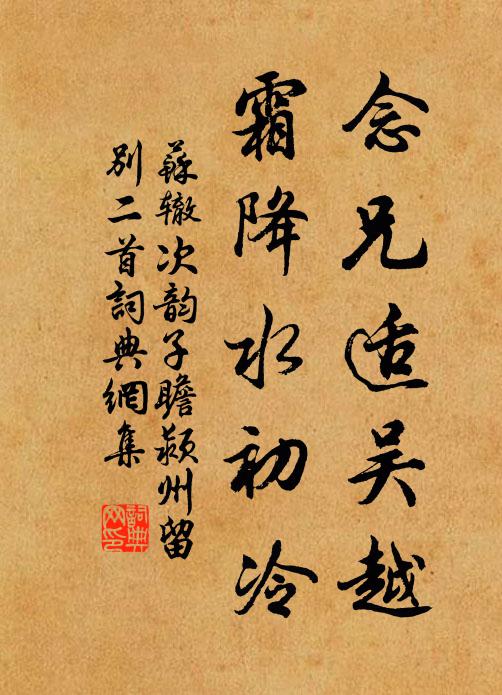 念兄适吴越
霜降水初冷
蘇辙次韵子瞻颍州留
别二首詞典網集
詞典网印